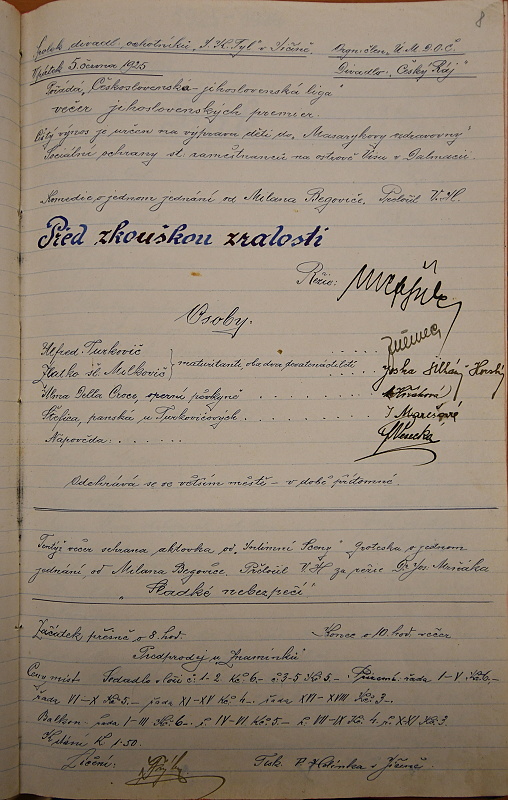 8
Spolek divad. ochotníků „J. K. Tyl“ v Jičíně. Org. člen. Ú. M. D. O. Č.
V pátek 5. června 1925 Divadlo: „Český Ráj“
Pořádá „Československá-jihoslovenská liga“
večer jihoslovenských premier.
Čistý výnos je určen na výpravu dětí do „Masarykovy ozdravovny“
Sociální ochrany st. zaměstnanců na ostrově Visu v Dalmacii.
Komedie o jednom jednání od Milana Begoviče. Přeložil V. H.
Před zkouškou zralosti
Režie:
Osoby.
Alfred Turkovič
Zlatko šl. Milkovič } maturitanté oba dva devatenáctiletí
Ilma Della Croce, operní pěvkyně
Štefica, panská u Turkovičových J. Marešová
Nápověda:
Odehrává se ve větším městě – v době přítomné.
Tentýž večer sehrána aktovka od „Intimní Sceny“ Groteska o jednom
jednání od Milana Begoviče. Přeložil V. H. za režie Dr. Jos. Maršáka
„Sladké nebezpečí“
Začátek přesně o 8. hod. Konec o 10. hod. večer
Předprodej u „Znamínků“
Ceny míst: Sedadlo v loži č. 1-2 Kč 6.– č. 3-5 Kč 5.– Přízemí: řada I–V Kč 6.–
řada VI–X Kč 5.– řada XI–XV Kč 4.– řada XVI–XVIII Kč 3.–
Balkon – řada I–III Kč 6.– ř. IV–VI Kč 5.– ř. VII–IX Kč 4 ř. X-XI Kč 3.
K stání K 1·50.
Líčení: Tisk. F. Holinka v Jičíně.